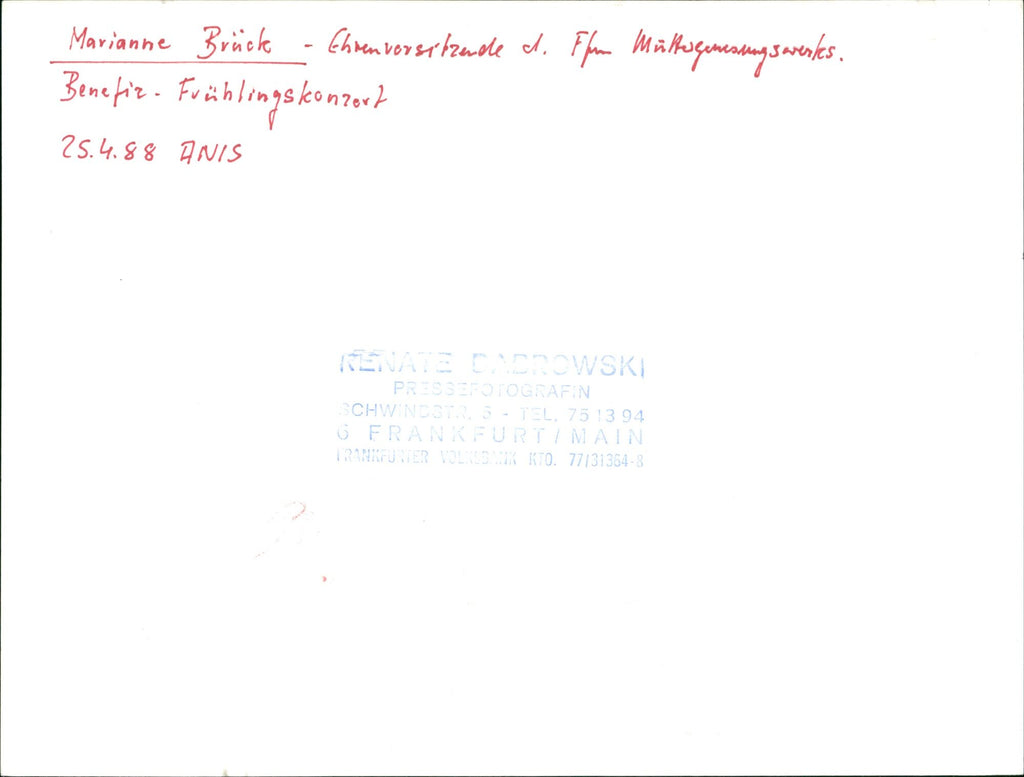 Marianne Brück - Ehrenvorsitzende d. Ffm Müttergenesungswerks.
Benefiz- Frühlingskonzert
25.4.88 ANIS
RENATE DABROWSKI
PRESSEFOTOGRAFIN
SCHWINDSTR. 5 - TEL. 75 13 94
6 FRANKFURT/MAIN
FRANKFURTER VOLKSBANK KTO. 77/31364-8